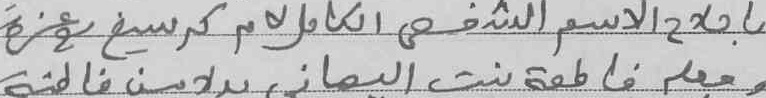 باصلاح الاسم الشخصي الكامل لام كرسيف عزيزة
وجعله فاطمة بنت اليماني بدلا من فاطنة